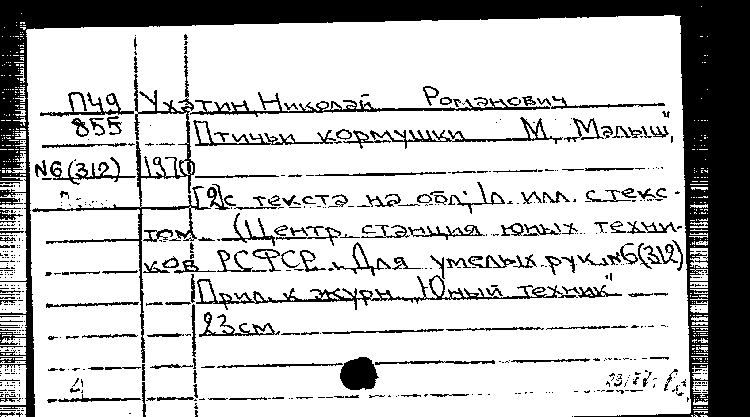 П49 Ухатин, Николай Романович
855 Птичьи кормушки М., „Малыш",
N6(312) 1970
[2]с текста на обл; 1л. илл. с текс-
том (Центр. станция юных техни-
ков РСФСР. „Для умелых рук" №6(312)
Прил. к журн. „Юный техник"
23см.
4